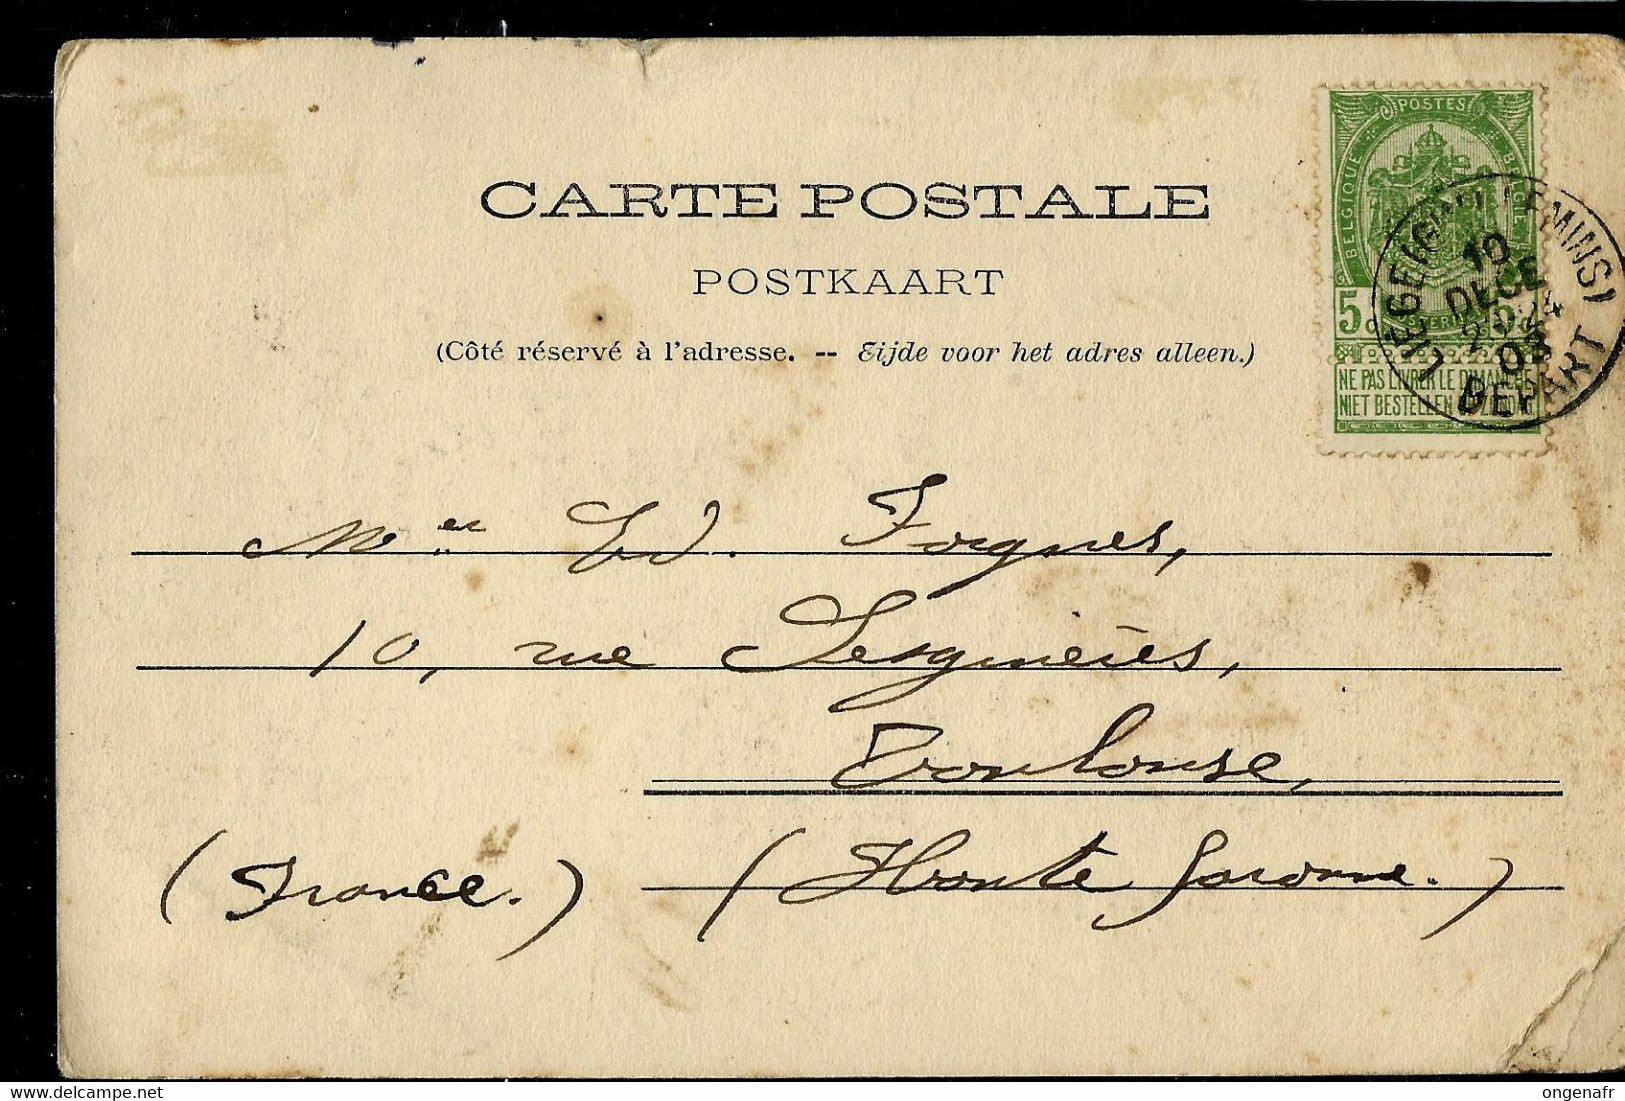 CARTE POSTALE
POSTKAART
(Côté réservé à l'adresse. -- Zijde voor het adres alleen.)
POSTES
BELGIQUE
BELGIË
5
NE PAS LIVRER LE DIMANCHE
NIET BESTELLEN OP ZONDAG
LIÉGE (GUILLEMINS)
10
DECE
03
DEPART
Ed. Forgnes,
10, rue Lesguières,
Toulouse,
(Haute Garonne.)
(France.)
delcampe.net
ongenafr